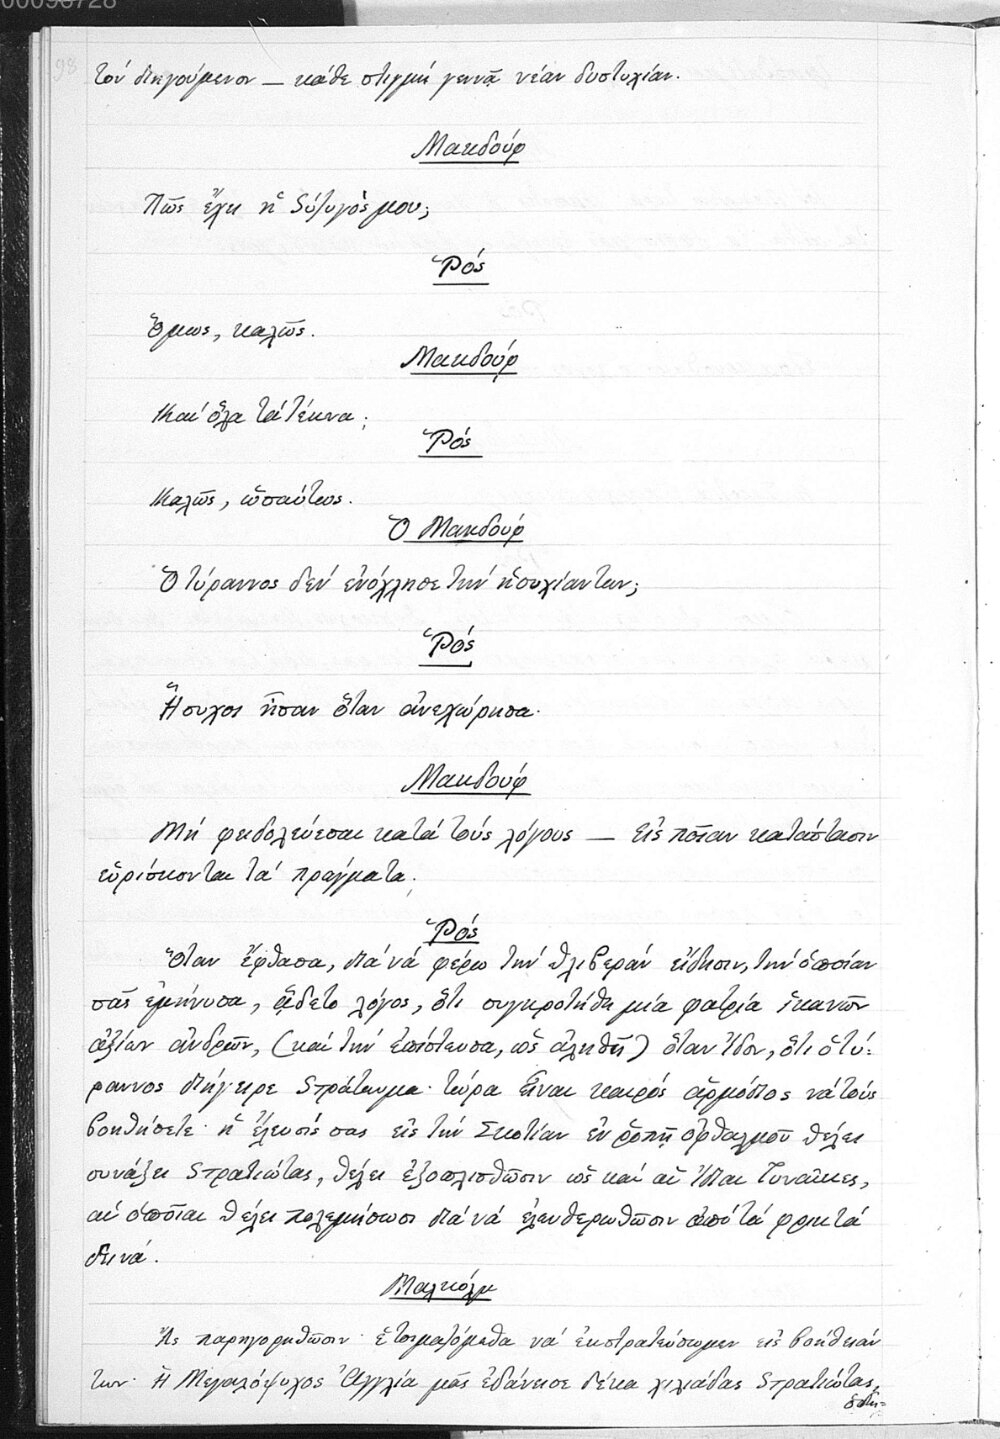 00098728
98
τὸν διηγούμενον — κάθε στιγμὴ γεννᾷ νέαν δυστυχίαν.
Μακδούφ
Πῶς ἔχει ἡ σύζυγός μου;
Ῥός
Ὅμως, καλῶς.
Μακδούφ
Καὶ ὅλα τὰ τέκνα;
Ῥός
Καλῶς, ὡσαύτως.
Ὁ Μακδούφ
Ὁ τύραννος δὲν ἐνόχλησε τὴν ἡσυχίαν των;
Ῥός
Ἥσυχοι ἦσαν ὅταν ἀνεχώρησα.
Μακδούφ
Μὴ φειδολεύεσαι κατὰ τοὺς λόγους — εἰς ποῖαν κατάστασιν
εὑρίσκονται τὰ πράγματα;
Ῥός
Ὅταν ἔφθασα, διὰ νὰ φέρω τὴν θλιβερὰν εἴδησιν, τὴν ὁποίαν
σᾶς ἐμήνυσα, ᾄδετο λόγος, ὅτι συγκροτήθη μία φατρία ἱκανῶν
ἀξίων ἀνδρῶν, (καὶ τὴν ἐπίστευσα, ὡς ἀληθῆ) ὅταν ἴδον, ὅτι ὁ τύ-
ραννος διήγειρε στράτευμα· τώρα εἶναι καιρὸς ἁρμόδιος νὰ τοὺς
βοηθήσετε· ἡ ἔλευσίς σας εἰς τὴν Σκοτίαν ἐν ῥοπῇ ὀφθαλμοῦ θέλει
συνάξει στρατιώτας, θέλει ἐξοπλισθῶσιν ὡς καὶ αἱ ἴδιαι γυναῖκες,
αἱ ὁποῖαι θέλει πολεμήσωσι διὰ νὰ ἐλευθερωθῶσιν ἀπὸ τὰ φρικτὰ
δεινά.
Μαλκόλμ
Ἂς παρηγορηθῶσιν· ἑτοιμαζόμεθα νὰ ἐκστρατεύσωμεν εἰς βοήθειάν
των· Ἡ Μεγαλόψυχος Ἀγγλία μᾶς ἐδάνεισε δέκα χιλιάδας στρατιώτας,